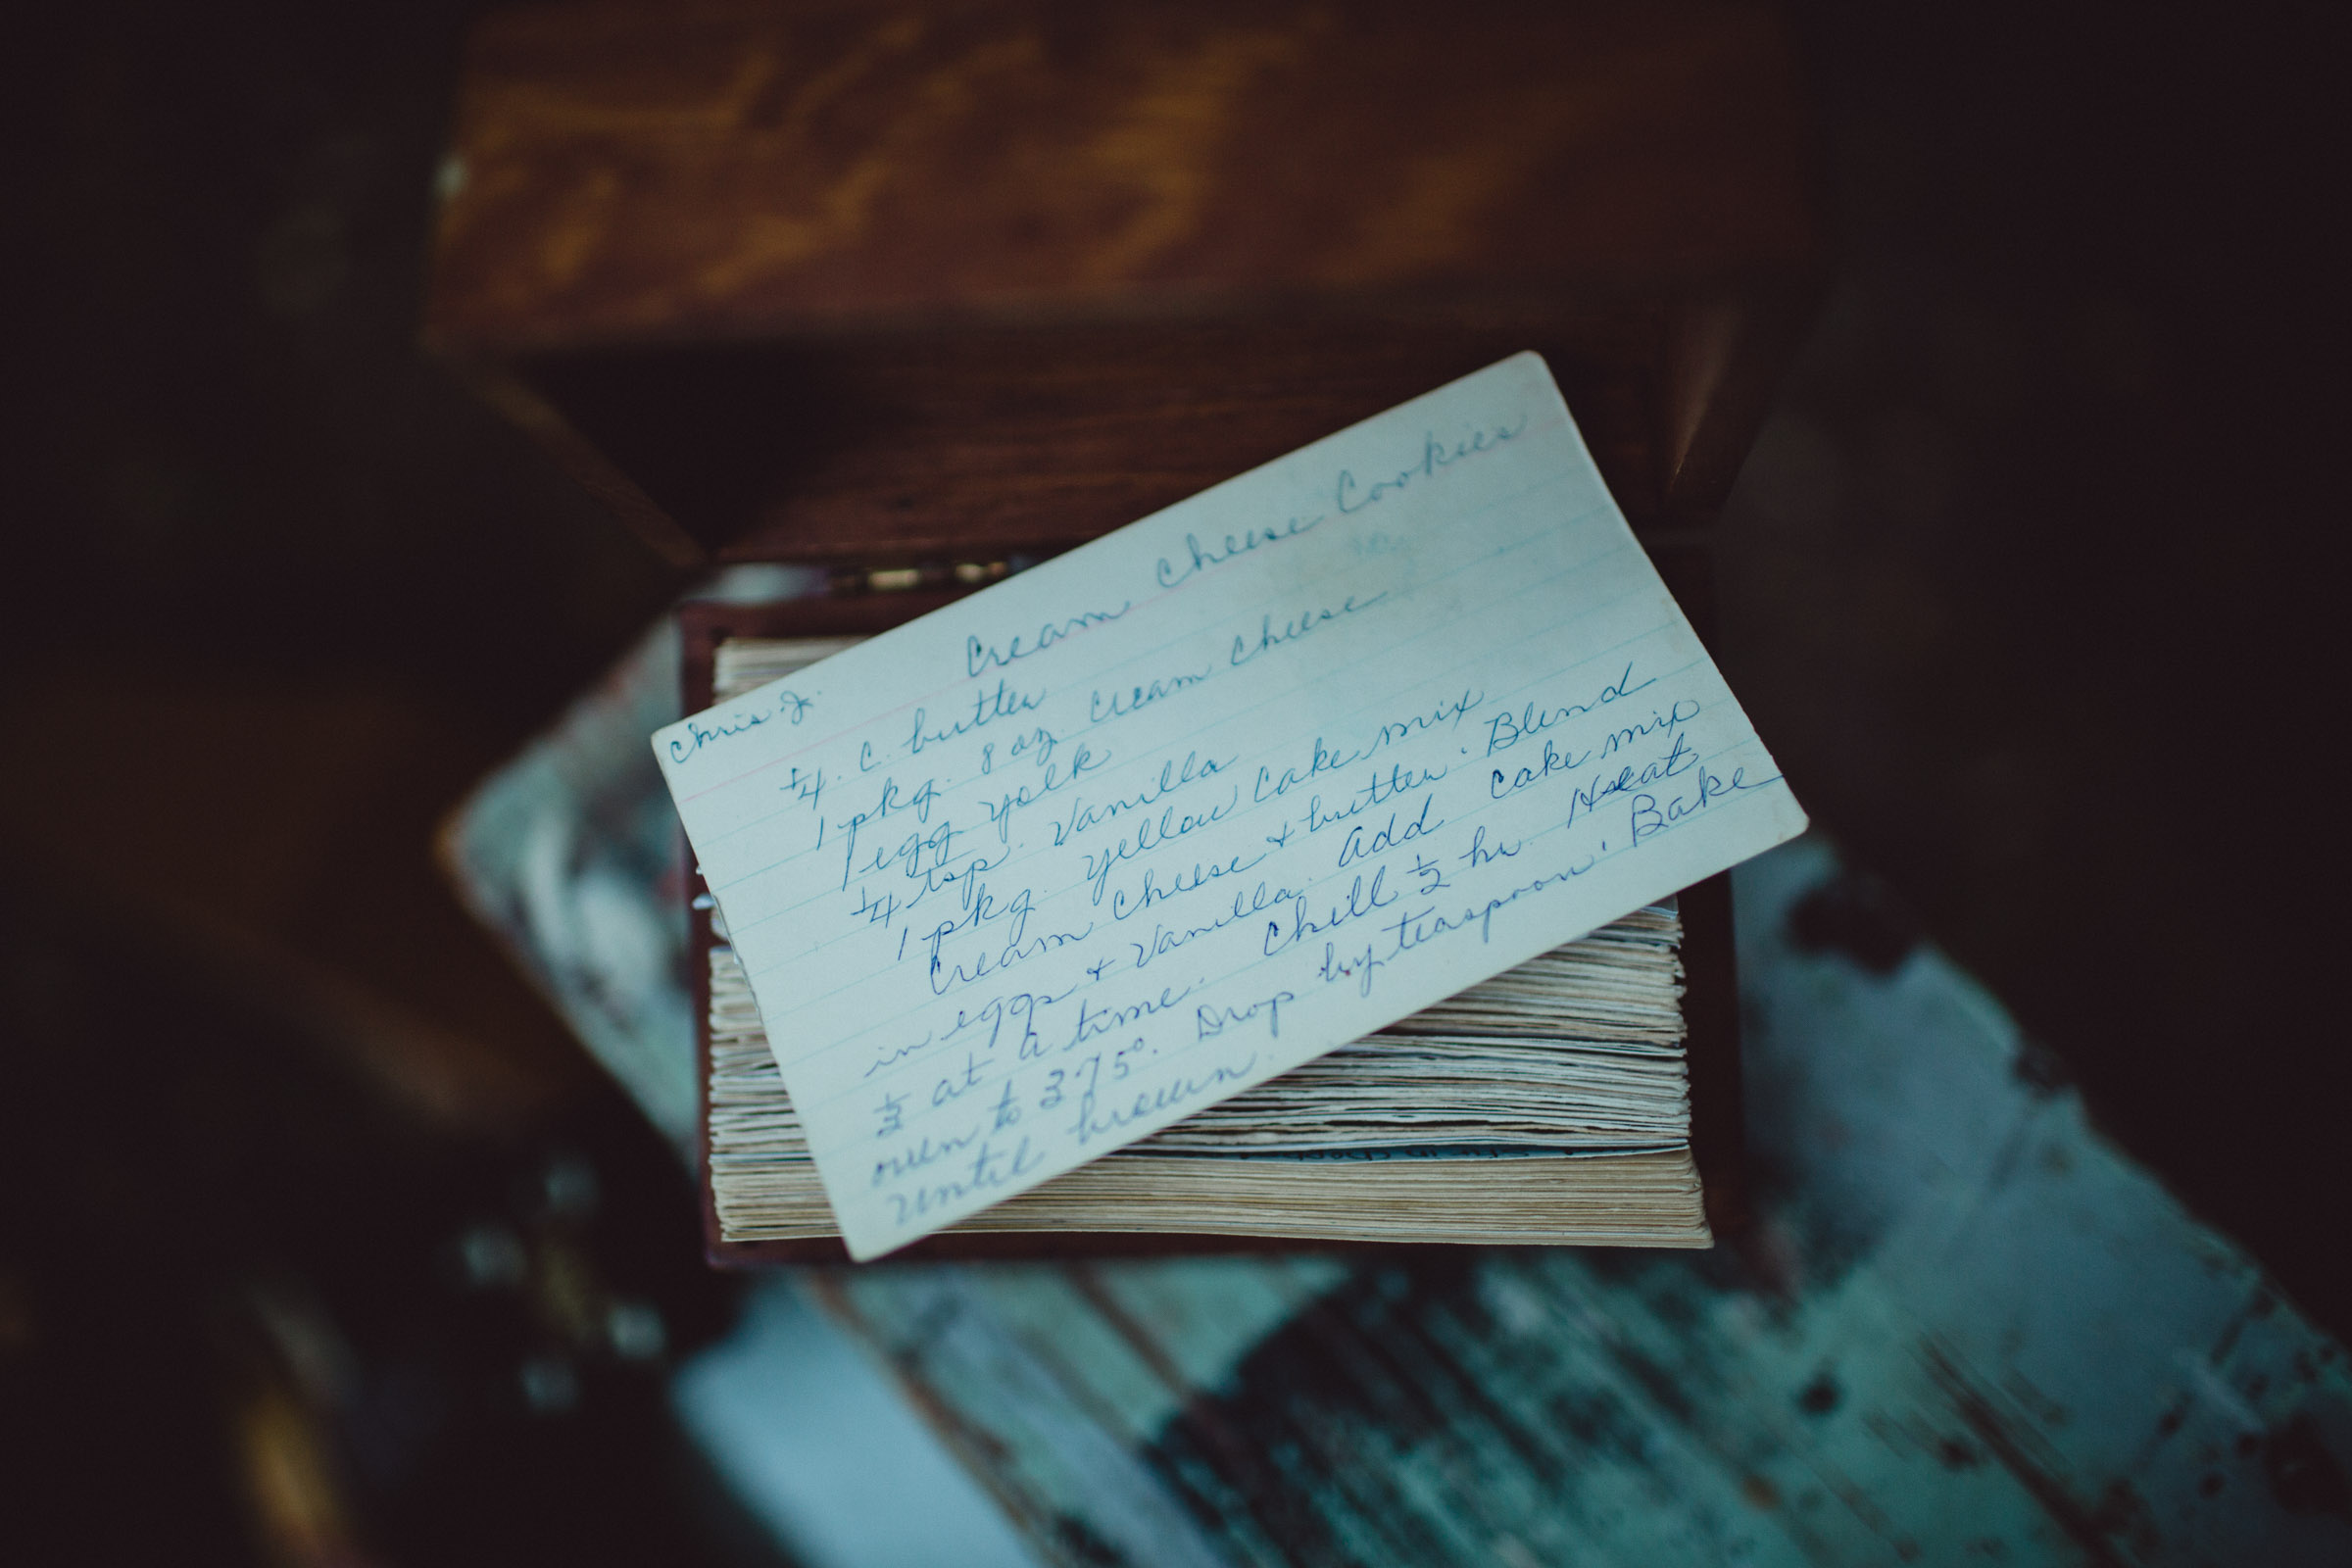 Cream Cheese Cookies
Chris J.
1/4. C. butter
1 pkg. 8 oz. cream cheese
1 egg yolk
1/4 tsp. Vanilla
1 pkg. yellow cake mix
Cream cheese + butter. Blend
in eggs + Vanilla. Add cake mix
1/3 at a time. Chill 1/2 hr. Heat
oven to 375°. Drop by teaspoon. Bake
until brown.